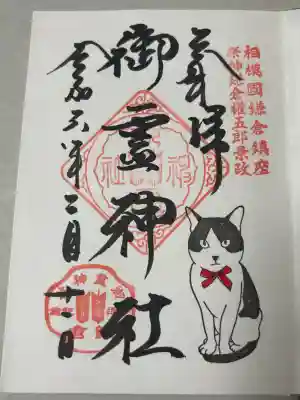 相模國鎌倉鎮座
祭神鎌倉権五郎景政
奉拝
御霊神社
令和六年二月十一日